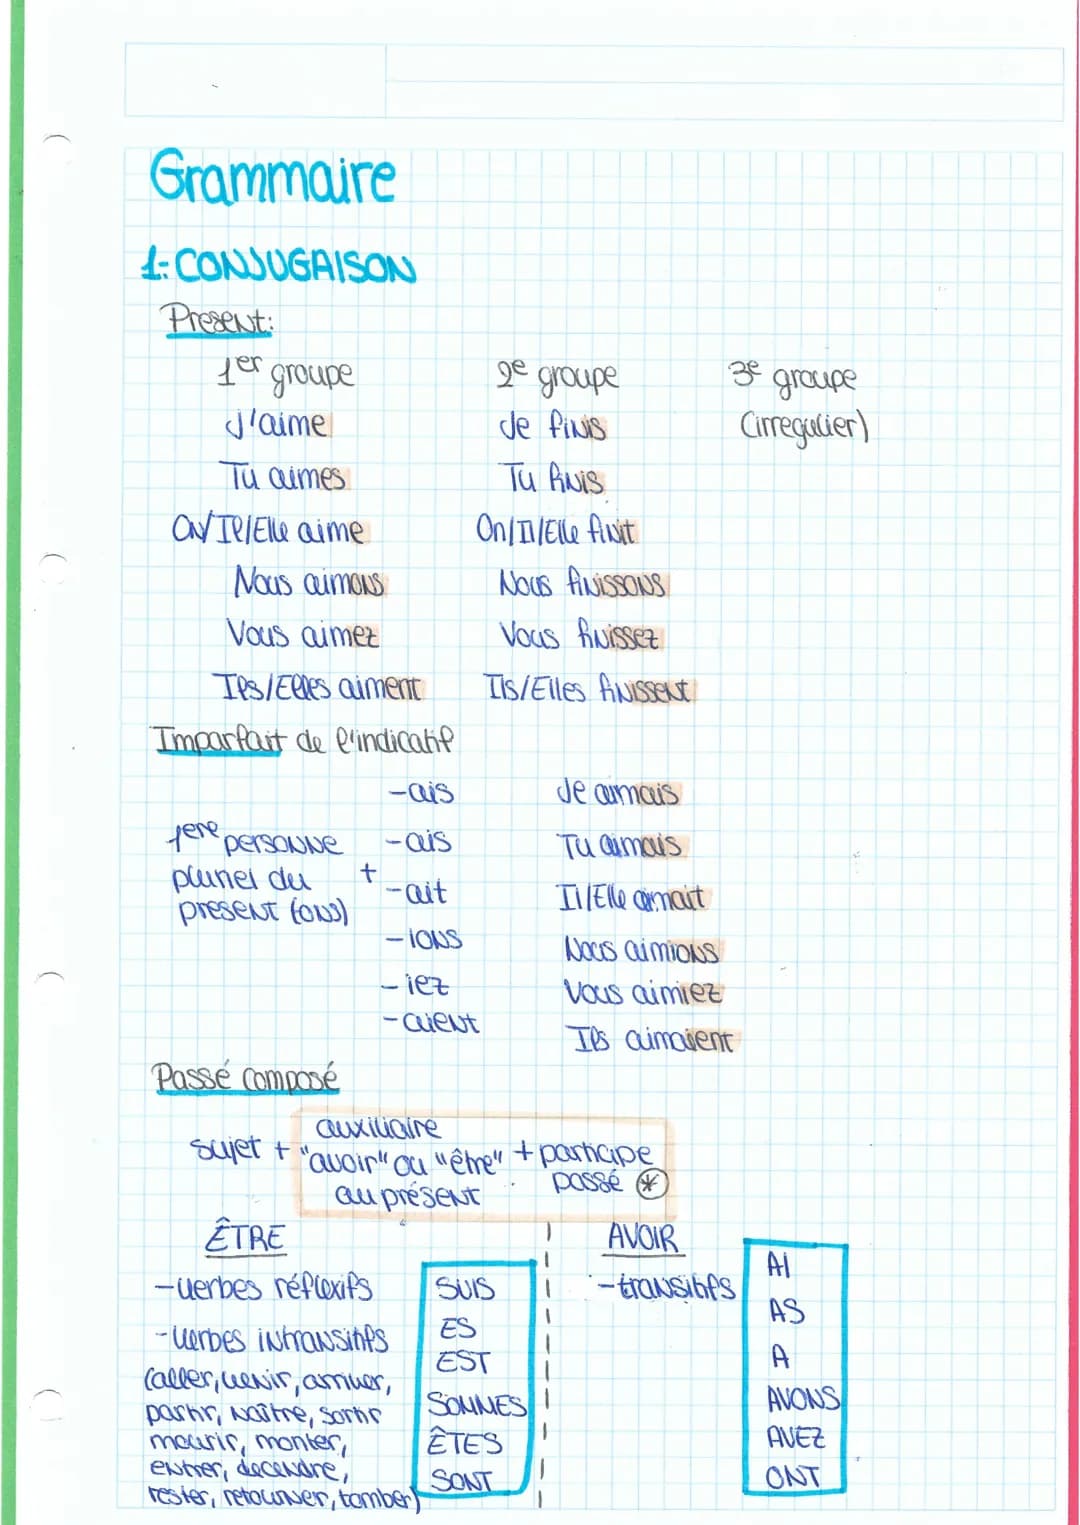 Grammaire
1-CONJUGAISON
Present:
1er groupe 2e groupe 3e groupe
J'aime Je finis (irregulier)
Tu aimes Tu finis
On/Il/Elle aime On/Il/Elle finit
Nous aimons Nous finissons
Vous aimez Vous finissez
Ils/Elles aiment Ils/Elles finissent
Imparfait de l'indicatif
-ais Je aimais
1ere personne -ais Tu aimais
pluriel du + -ait Il/Elle aimait
present (ons)
-ions Nous aimions
-iez Vous aimiez
-aient Ils aimaient
Passé composé
auxiliaire
sujet + "avoir" ou "être" + participe
au présent passé *
ÊTRE AVOIR
-verbes réflexifs SUIS -transitifs AI
-verbes intransitifs ES AS
(aller, venir, arriver, EST A
partir, naître, sortir SOMMES AVONS
mourir, monter, ÊTES AVEZ
entrer, decendre, SONT ONT
rester, retourner, tomber)